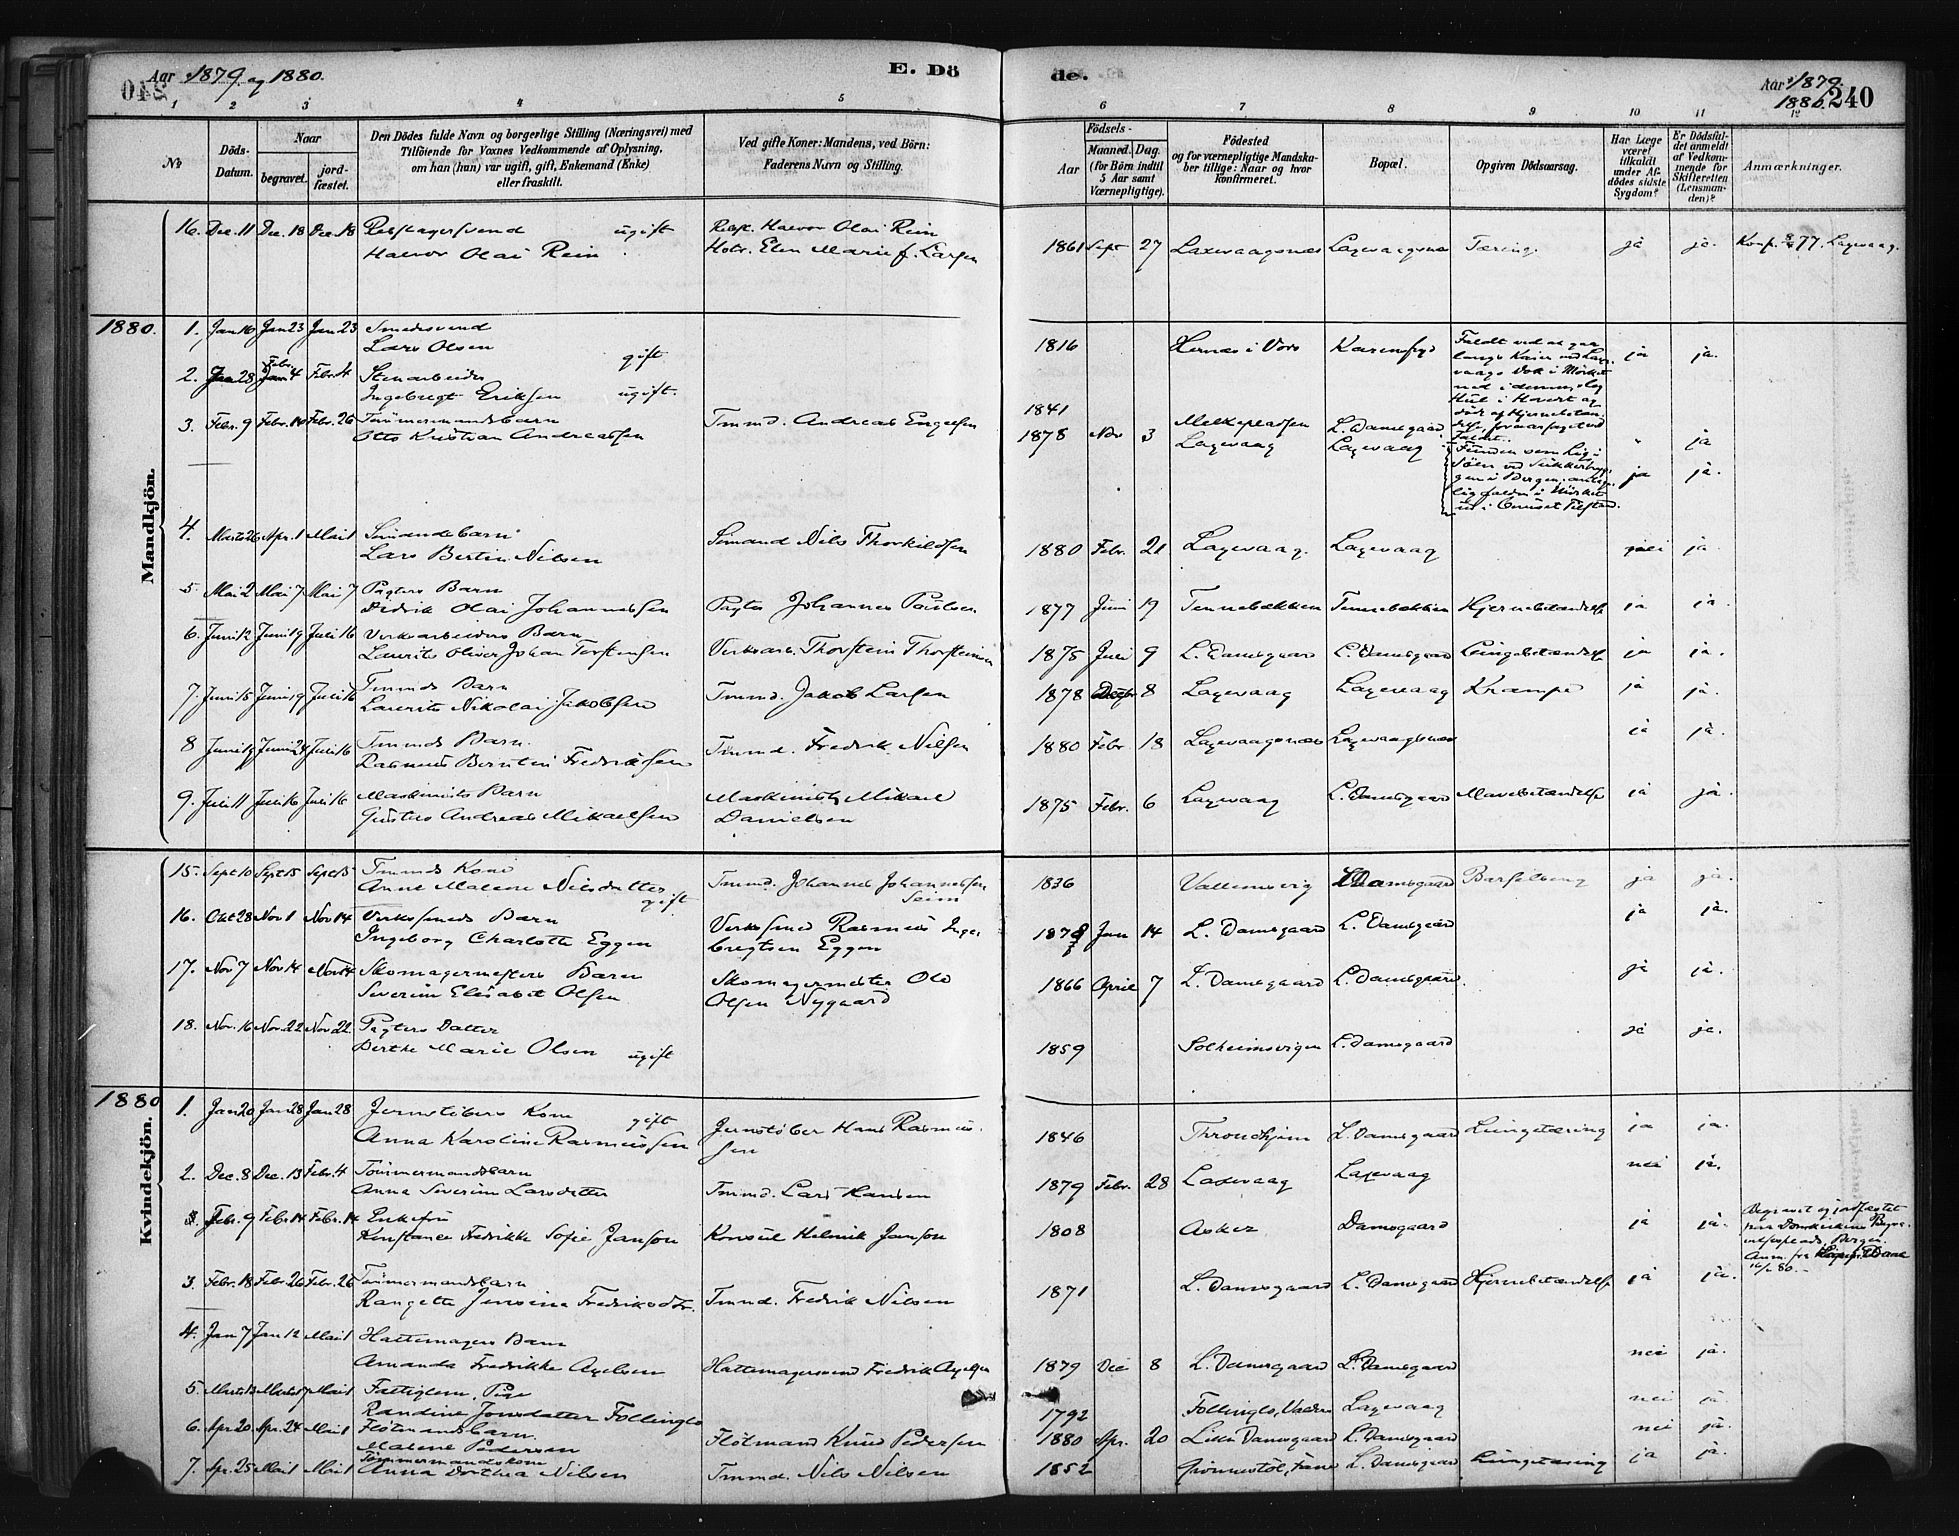 Aar 1879 og 1880.
E. Dö
de.
Aar 1879
1880.
240
1 2 3 4 5 6 7 8 9 10 11 12
No
Döds-Datum.
Naar
begravet.
jord-fæstet.
Den Dödes fulde Navn og borgerlige Stilling (Næringsvei) med
Tilföiende for Voxnes Vedkommende af Oplysning,
om han (hun) var ugift, gift, Enkemand (Enke)
eller fraskilt.
Ved gifte Koner: Mandens, ved Börn:
Faderens Navn og Stilling.
Födsels-
Aar
Maaned. Dag.
(for Börn indtil
5 Aar samt
Værnepligtige).
Födested
og for værnepligtige Mandska-
ber tillige: Naar og hvor
Konfirmeret.
Bopæl.
Opgiven Dödsaarsag.
Har Læge
været
tilkaldt
under Af-
dödes sidste
Sygdom?
Er Dödsfal-
det anmeldt
af Vedkom-
mende for
Skifteretten
(Lensman-
den)?
Anmærkninger.
Mandkjön.
16. Dec. 11 Dec. 18 Dec. 18 Rebslagersvend ugift
Halvor Olai Rein
Rebsl. Halvor Olai Rein
Hstr. Elen Marie f. Larsen
1861 Sept 27 Laxevaagsnæs Laxevaagsnæs Tæring. ja ja. Konf. 77. Laxevaag.
1880.
1. Jan 16 Jan 23 Jan 23 Smedesvend
Lars Olsen gift
1816 Hernæs i Vors ja ja.
Faldt ved at gaa
langs Kaien ved Laxe-
vaags Dok i Mörket
ned i denne, slog
Hul i Hovedet og
döde af Hjernebetæn-
delse, foraarsaget ved
Faldet.
2. Jan 28 Febr. 4 Febr. 4 Stenarbeider
Ingebrigt Eriksen ugift.
1841 Melkepladsen L. Damsgaard ja
Funden som Lig i
Söen ved Sukkerbryg-
gen i Bergen, antage-
lig falden i Mörket
ud i beruset Tilstand.
3. Febr. 9 Febr. 14 Febr. 26 Tömmermandsbarn
Otto Kristian Andreassen
Tmmd. Andreas Engelsen
1878 Nov 3 Laxevaag Laxevaag ja ja.
4. Marts 26 Apr. 1 Mai 1 Sömandsbarn
Lars Bertin Nilsen
Sömand Nils Thorkildsen
1880 Febr. 21 Laxevaag. Laxevaag ja
5. Mai 2 Mai 7 Mai 7 Pagters Barn
Didrik Olai Johannessen
Pagter Johannes Paulsen
1877 Juni 19 Tennebækken Tennebækken Hjernebetændelse ja ja.
6. Juni 12 Juni 19 Juli 16 Verksarbeiders Barn
Laurits Oliver Johan Torstensen
Verksarb. Thorstein Thorsteinsen
1875 Juli 9 L. Damsgaard L. Damsgaard Lungebetændelse ja ja.
7. Juni 15 Juni 19 Juli 16 Tmmds Barn
Laurits Nikolai Jakobsen
Tmmd. Jakob Larsen
1878 8 Laxevaag Laxevaag Krampe ja ja.
8 Juni 19 Juni 24 Juli 16 Tmmds Barn.
Rasmus Berntin Fredriksen
Tmmd. Fredrik Nilsen
1880 Febr 18 Laxevaagsnæs Laxevaagsnæs ja ja.
9. Juli 11 Juli 16 Juli 16 Maskinists Barn
Gustav Andreas Mikaelsen
Maskinist Mikael
Danielsen
1875 Febr. 6 Laxevaag L. Damsgaard Mavebetændelse ja ja.
Kvindekjön.
15. Sept 10 Sept 15 Sept 15 Tmmds Kone
Anne Malene Nilsdatter gift
Tmmd. Johannes Johannessen
Seim
1836 L. Damsgaard Barselseng ja ja.
16. Okt 28 Nov 1 Nov 14 Verksmeds Barn
Ingeborg Charlotte Eggen
Verksmed Rasmus Inge-
brigtsen Eggen
Jan 14 L. Damsgaard L. Damsgaard ja ja.
17. Nov 7 Nov 14 Nov 14 Skomagermesters Barn
Severine Elisabet Olsen
Skomagermester Ole
Olsen Nygaard
1866 April 7 L. Damsgaard L. Damsgaard. ja ja.
18. Nov. 16 Nov. 22 Nov 22. Pagters Datter
Berthe Marie Olsen ugift
1859 Solheimsvigen L. Damsgaard ja ja.
1880
1. Jan 20 Jan 28 Jan 28 Jernstöbers Kone gift
Anna Karoline Rasmussen
Jernstöber Hans Rasmus-
sen
1846 Throndhjem L. Damsgaard Lungetæring ja ja.
2. Dec. 8 Dec. 13 Febr. 4 Tömmermandsbarn
Anna Severine Larsdatter
Tmmd. Lars Hansen
1879 Febr. 28 Laxevaag Laxevaag nei ja.
Febr. 9 Febr 14 Febr. 14 Enkefru
Konstance Fredrikke Sofie Janson
Konsul Helmik Janson
1808 Asker Damsgaard ja ja.
Begravet og jordfæstet
paa Domkirkens Begra-
velsesplads, Bergen.
Anm. fra
16/2 80.
3. Febr. 18 Febr. 26 Febr. 26 Tömmermandsbarn
Rangelta Jensine Fredriksdtr.
Tmmd. Fredrik Nilsen
1871 L. Damsgaard L. Damsgaard Hjernebetændelse ja ja.
4. Jan 7 Jan 12 Mai 1 Hattemagers Barn
Amanda Fredrikke Axelsen
Hattemagersvend Fredrik Axelsen
1879 Dec 8 L. Damsgaard L. Damsgaard nei ja.
5. Marts 13 Marts 17 Mai 1 Fattiglem, Pige
Randine Jonsdatter Follinglo
1792 Follinglo, Valders Laxevaag nei ja
6 Apr. 20 Apr. 24 Mai 1 Flötmandsbarn.
Malene Pedersen
Flötmand Knud Pedersen
1880 Apr. 20 Lille Damsgaard L. Damsgaard nei ja.
7. Apr. 25 Mai 1 Mai 1 Tömmermandskone
Anna Dorthea Nilsen
Tmmd. Nils Nilsen
1852 L. Damsgaard Lungetæring ja ja.